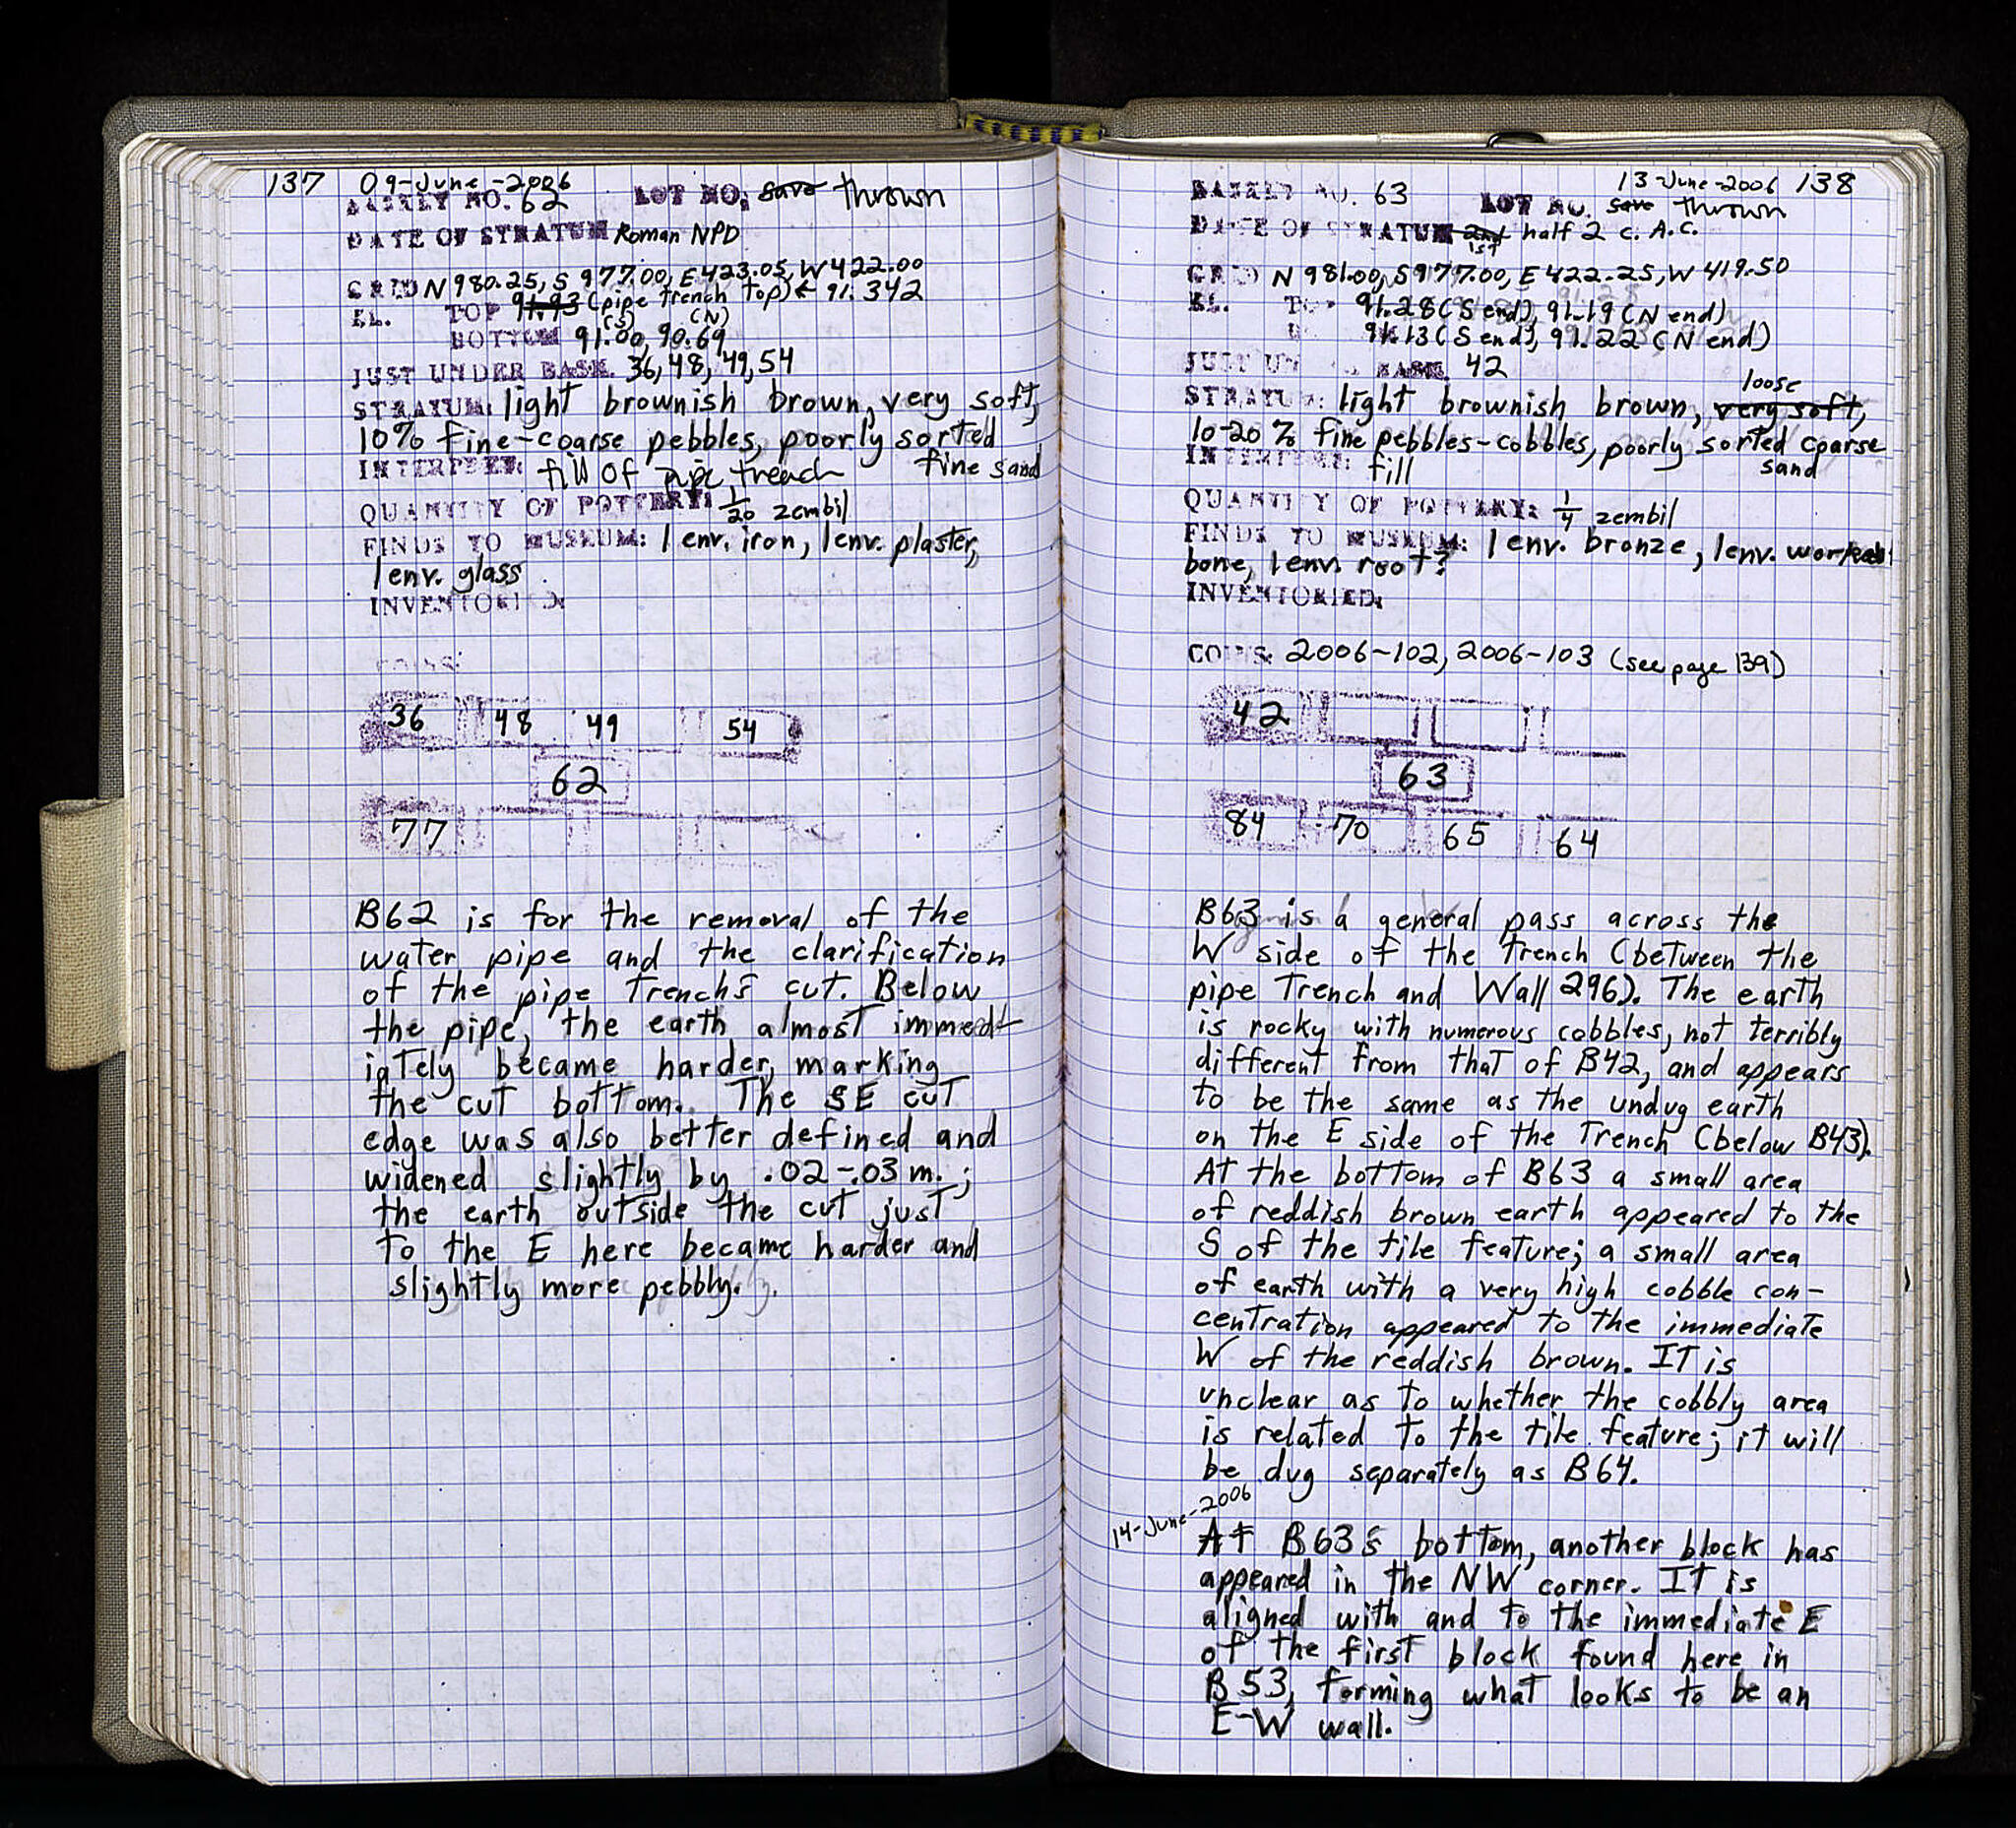 137 09-June-2006
BASKET NO. 62 LOT NO. save thrown
DATE OF STRATUM Roman NPD
GRID N 980.25, S 977.00, E 423.05, W 422.00
EL. TOP 91.93 (pipe trench top) ← 91.342
(S) (N)
BOTTOM 91.00, 90.69
JUST UNDER BASK. 36, 48, 49, 54
STRATUM: light brownish brown, very soft,
10% fine-coarse pebbles, poorly sorted
fine sand
INTERPRET: fill of pipe trench
QUANTITY OF POTTERY: 1/20 zembil
FINDS TO MUSEUM: 1 env. iron, 1 env. plaster,
1 env. glass
INVENTORIED:
COINS:
36 48 49 54
62
77
B62 is for the removal of the
water pipe and the clarification
of the pipe trench's cut. Below
the pipe, the earth almost immed-
iately became harder, marking
the cut bottom. The SE cut
edge was also better defined and
widened slightly by .02-.03 m.;
the earth outside the cut just
to the E here became harder and
slightly more pebbly.
13-June-2006 138
BASKET NO. 63 LOT NO. save thrown
DATE OF STRATUM 2nd half 2 c. A.C.
1st
GRID N 981.00, S 977.00, E 422.25, W 419.50
EL. TOP 91.28 (S end), 91.19 (N end)
91.13 (S end), 91.22 (N end)
JUST UNDER BASK. 42
loose
STRATUM: light brownish brown, very soft,
10-20% fine pebbles-cobbles, poorly sorted coarse
sand
INTERPRET: fill
QUANTITY OF POTTERY: 1/4 zembil
FINDS TO MUSEUM: 1 env. bronze, 1 env. worked
bone, 1 env. root?
INVENTORIED:
COINS: 2006-102, 2006-103 (see page 139)
42
63
84 70 65 64
B63 is a general pass across the
W side of the trench (between the
pipe trench and Wall 296). The earth
is rocky with numerous cobbles, not terribly
different from that of B42, and appears
to be the same as the undug earth
on the E side of the trench (below B43).
At the bottom of B63 a small area
of reddish brown earth appeared to the
S of the tile feature; a small area
of earth with a very high cobble con-
centration appeared to the immediate
W of the reddish brown. It is
unclear as to whether the cobbly area
is related to the tile feature; it will
be dug separately as B64.
14-June-2006
At B63's bottom, another block has
appeared in the NW corner. It is
aligned with and to the immediate E
of the first block found here in
B53, forming what looks to be an
E-W wall.